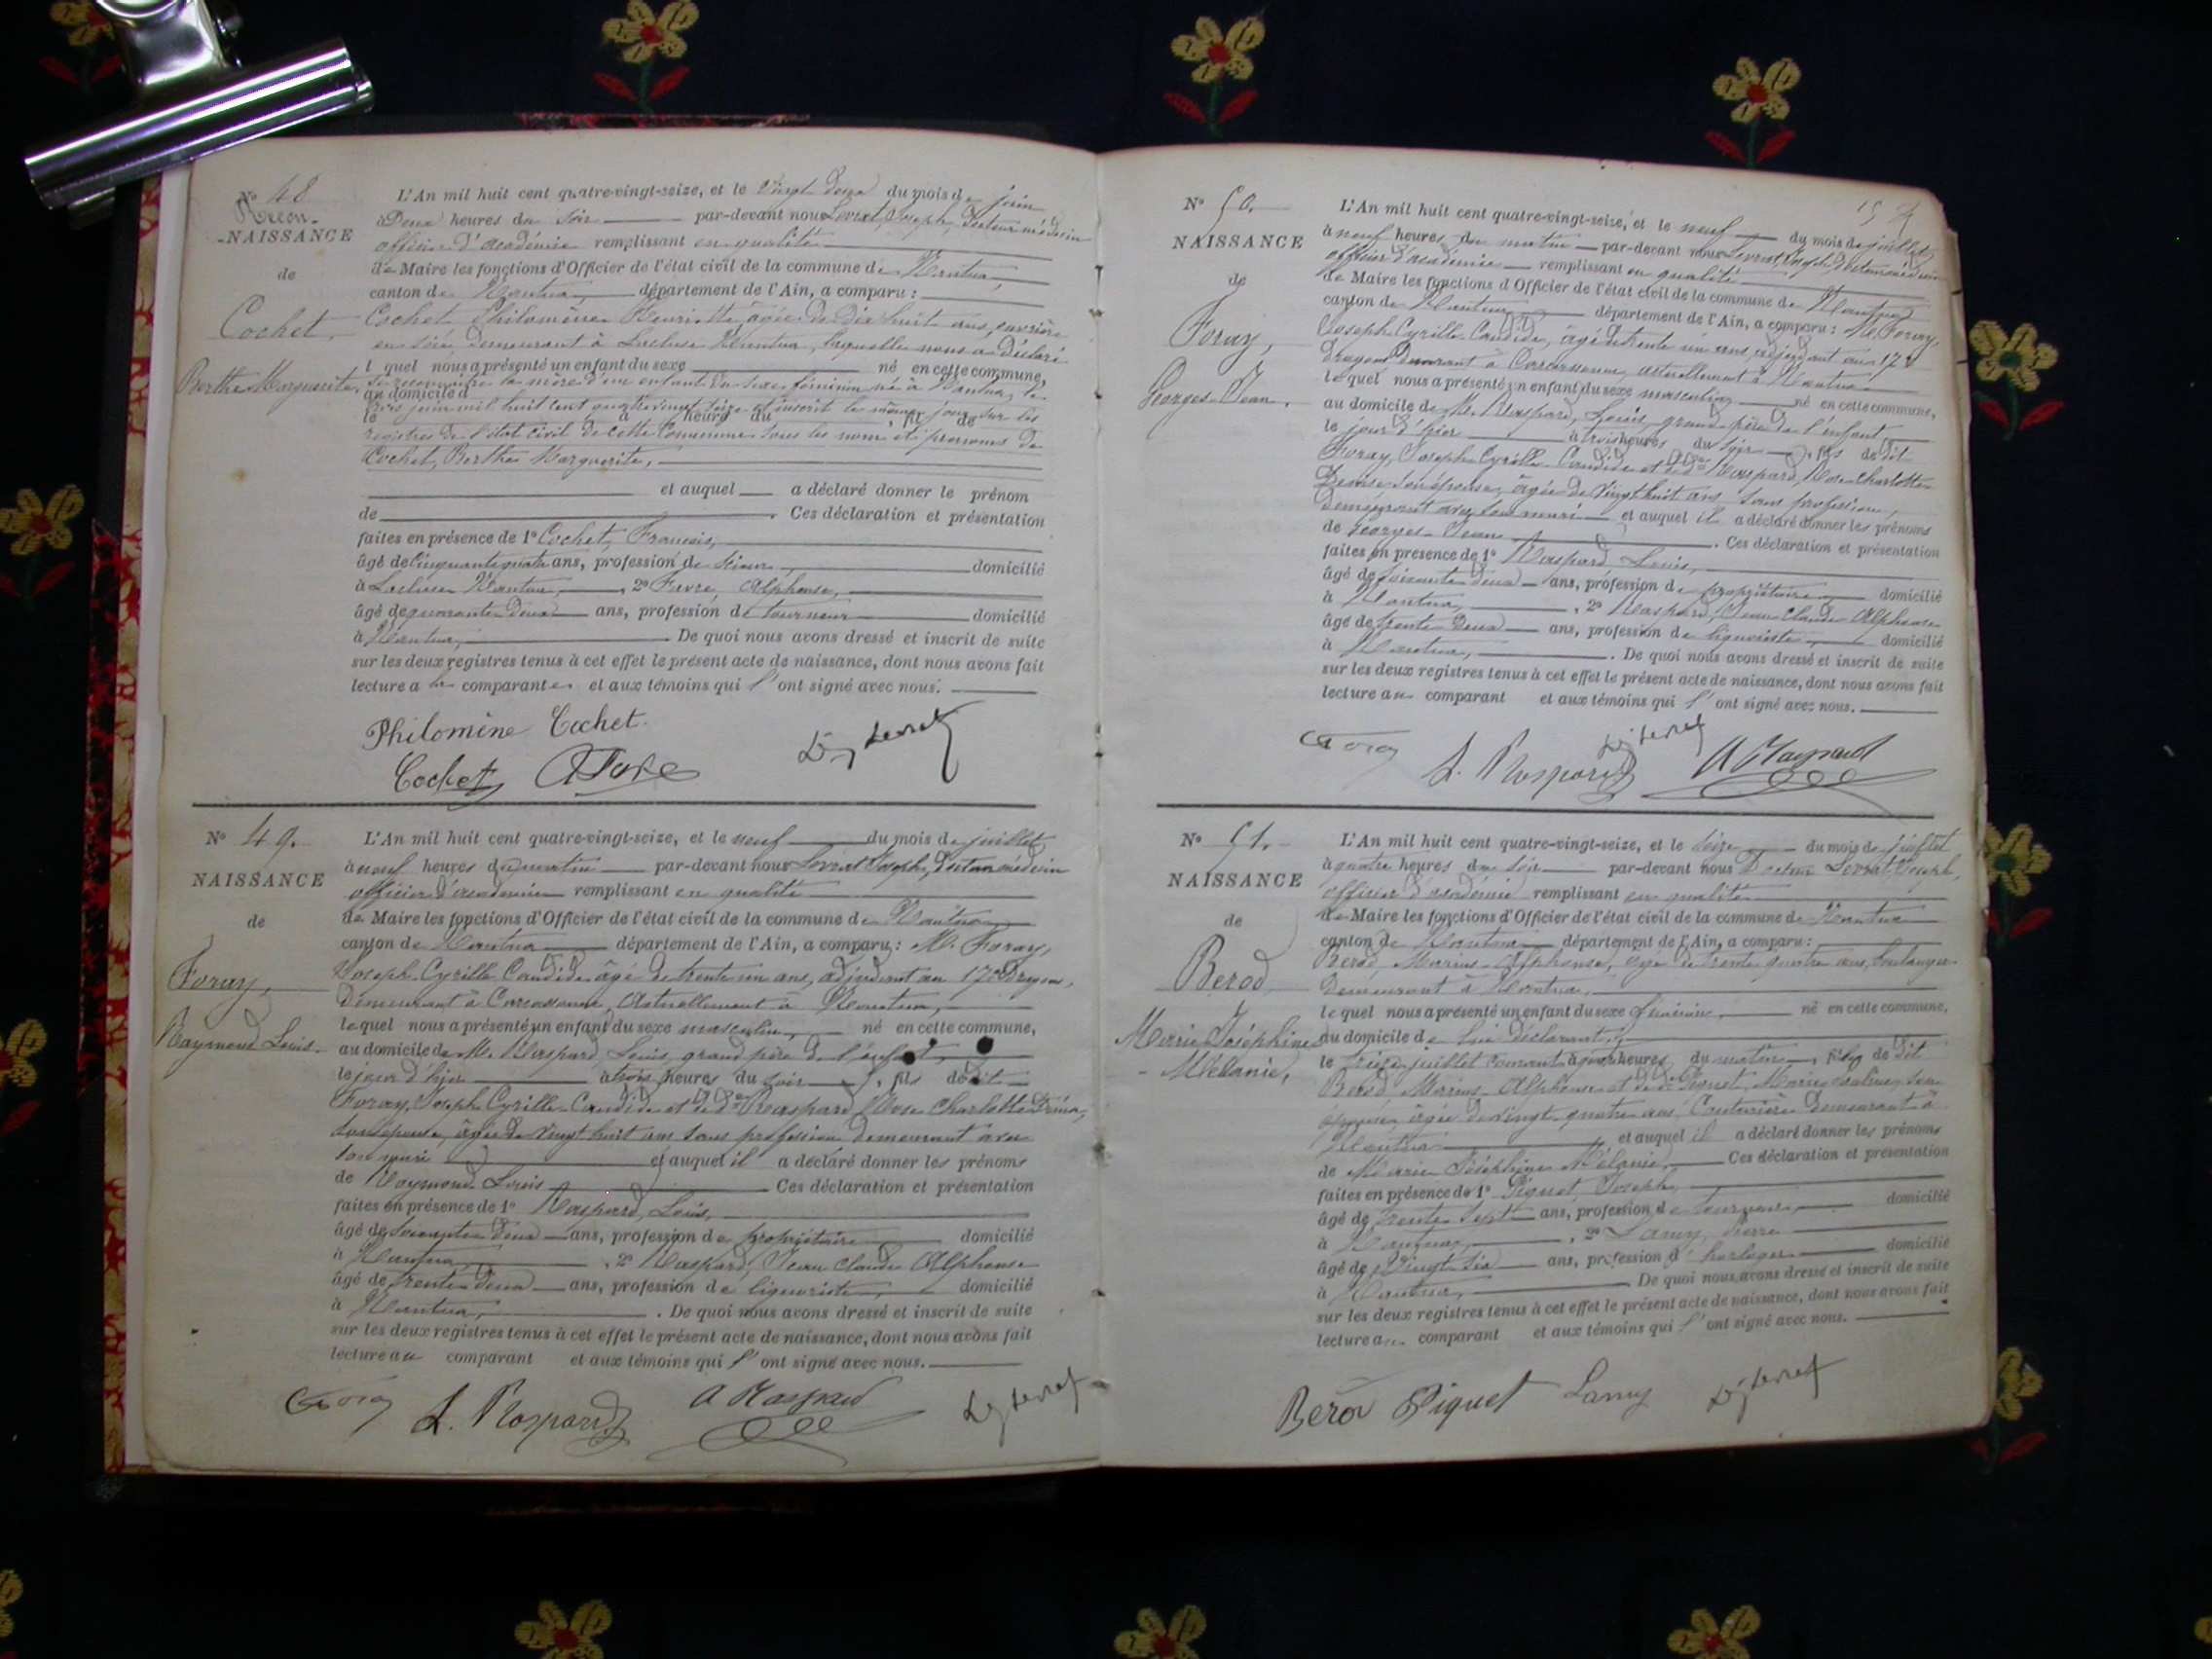 N° 48
Recon-
-NAISSANCE
de
Cochet,
Berthe Marguerite,
L'An mil huit cent quatre-vingt-seize, et le vingt deux du mois de juin
à Deux heures du soir par-devant nous Levrat, Joseph, Docteur médecin
officier d'académie remplissant en qualité
de Maire les fonctions d'Officier de l'état civil de la commune de Nantua,
canton de Nantua, département de l'Ain, a comparu :
Cochet Philomène Henriette âgée de dix huit ans, ouvrière
en soie demeurant à Lacluse Nantua, laquelle nous a déclaré
l quel nous a présenté un enfant du sexe né en cette commune,
se reconnaître la mère d'un enfant du sexe féminin né à Nantua, le
au domicile d
juin mil huit cent quatre vingt seize et inscrit le même jour sur les
le à heure du , fil de
registres de l'état civil de cette Commune sous les nom et prénoms de
Cochet, Berthe Marguerite,
et auquel a déclaré donner le prénom
de . Ces déclaration et présentation
faites en présence de 1° Cochet, François,
âgé de Cinquante quatre ans, profession de scieur, domicilié
à Lacluse Nantua, , 2° Favre, Alphonse,
âgé de quarante deux ans, profession de tourneur domicilié
à Nantua, . De quoi nous avons dressé et inscrit de suite
sur les deux registres tenus à cet effet le présent acte de naissance, dont nous avons fait
lecture a la comparante et aux témoins qui l'ont signé avec nous.
Philomène Cochet.
Cochet Dr J Levrat
N° 49.
NAISSANCE
de
Foray,
Raymond Louis.
L'An mil huit cent quatre-vingt-seize, et le neuf du mois de juillet
à neuf heures du matin par-devant nous Levrat Joseph, Docteur médecin
officier d'académie remplissant en qualité
de Maire les fonctions d'Officier de l'état civil de la commune de Nantua
canton de Nantua département de l'Ain, a comparu : M. Foray,
Joseph Cyrille Candide âgé de trente un ans, adjudant au 17e Dragons,
demeurant à Carcassonne, actuellement à Nantua,
lequel nous a présenté un enfant du sexe masculin, né en cette commune,
au domicile de M. Raspard, Louis, grand père de l'enfant,
le jour d'hier à trois heures du soir , fils de dit
Foray, Joseph Cyrille Candide et de De Raspard, Rose Charlotte
son épouse, âgée de vingt huit ans sans profession demeurant avec
son mari et auquel il a déclaré donner les prénoms
de Raymond Louis Ces déclaration et présentation
faites en présence de 1° Raspard, Louis,
âgé de soixante deux ans, profession de propriétaire domicilié
à Nantua, , 2° Raspard, Jean Claude Alphonse
âgé de trente deux ans, profession de liquoriste, domicilié
à Nantua, . De quoi nous avons dressé et inscrit de suite
sur les deux registres tenus à cet effet le présent acte de naissance, dont nous avons fait
lecture au comparant et aux témoins qui l'ont signé avec nous.
L. Raspard A Raspard Dr J Levrat
N° 50.
NAISSANCE
de
Foray,
Georges Jean.
L'An mil huit cent quatre-vingt-seize, et le neuf du mois de juillet
à neuf heures du matin par-devant nous Levrat, Joseph, Docteur médecin
officier d'académie remplissant en qualité
de Maire les fonctions d'Officier de l'état civil de la commune de Nantua
canton de Nantua département de l'Ain, a comparu : M. Foray,
Joseph Cyrille Candide, âgé de trente un ans, adjudant au 17e
Dragons demeurant à Carcassonne, actuellement à Nantua
lequel nous a présenté un enfant du sexe masculin né en cette commune,
au domicile de M. Raspard, Louis, grand père de l'enfant
le jour d'hier à trois heures du soir , fils de dit
Foray, Joseph Cyrille Candide et de De Raspard, Rose Charlotte
son épouse, âgée de vingt huit ans sans profession,
demeurant avec son mari et auquel il a déclaré donner les prénoms
de Georges Jean . Ces déclaration et présentation
faites en présence de 1° Raspard Louis,
âgé de soixante deux ans, profession de propriétaire domicilié
à Nantua, , 2° Raspard, Jean Claude Alphonse
âgé de trente deux ans, profession de liquoriste domicilié
à Nantua, . De quoi nous avons dressé et inscrit de suite
sur les deux registres tenus à cet effet le présent acte de naissance, dont nous avons fait
lecture au comparant et aux témoins qui l'ont signé avec nous.
L. Raspard Dr J Levrat A Raspard
N° 51.
NAISSANCE
de
Berod
Marie Joséphine
- Mélanie,
L'An mil huit cent quatre-vingt-seize, et le seize du mois de juillet
à quatre heures du soir par-devant nous Docteur Levrat Joseph,
officier d'académie remplissant en qualité
de Maire les fonctions d'Officier de l'état civil de la commune de Nantua
canton de Nantua département de l'Ain, a comparu :
Berod, Marius Alphonse, âgé de trente quatre ans, boulanger
demeurant à Nantua,
lequel nous a présenté un enfant du sexe féminin, né en cette commune,
au domicile de lui déclarant,
le treize juillet courant à heures du matin , fille de dit
Berod Marius Alphonse et de De Piquet, Marie son
épouse, âgée de vingt quatre ans, Couturière demeurant à
Nantua et auquel il a déclaré donner les prénoms
de Marie Joséphine Mélanie, Ces déclaration et présentation
faites en présence de 1° Piquet, Joseph,
âgé de trente sept ans, profession de tourneur, domicilié
à Nantua, , 2° Lamy, Pierre
âgé de vingt six ans, profession d'horloger domicilié
à Nantua, De quoi nous avons dressé et inscrit de suite
sur les deux registres tenus à cet effet le présent acte de naissance, dont nous avons fait
lecture au comparant et aux témoins qui l'ont signé avec nous.
Berod Piquet Lamy Dr J Levrat